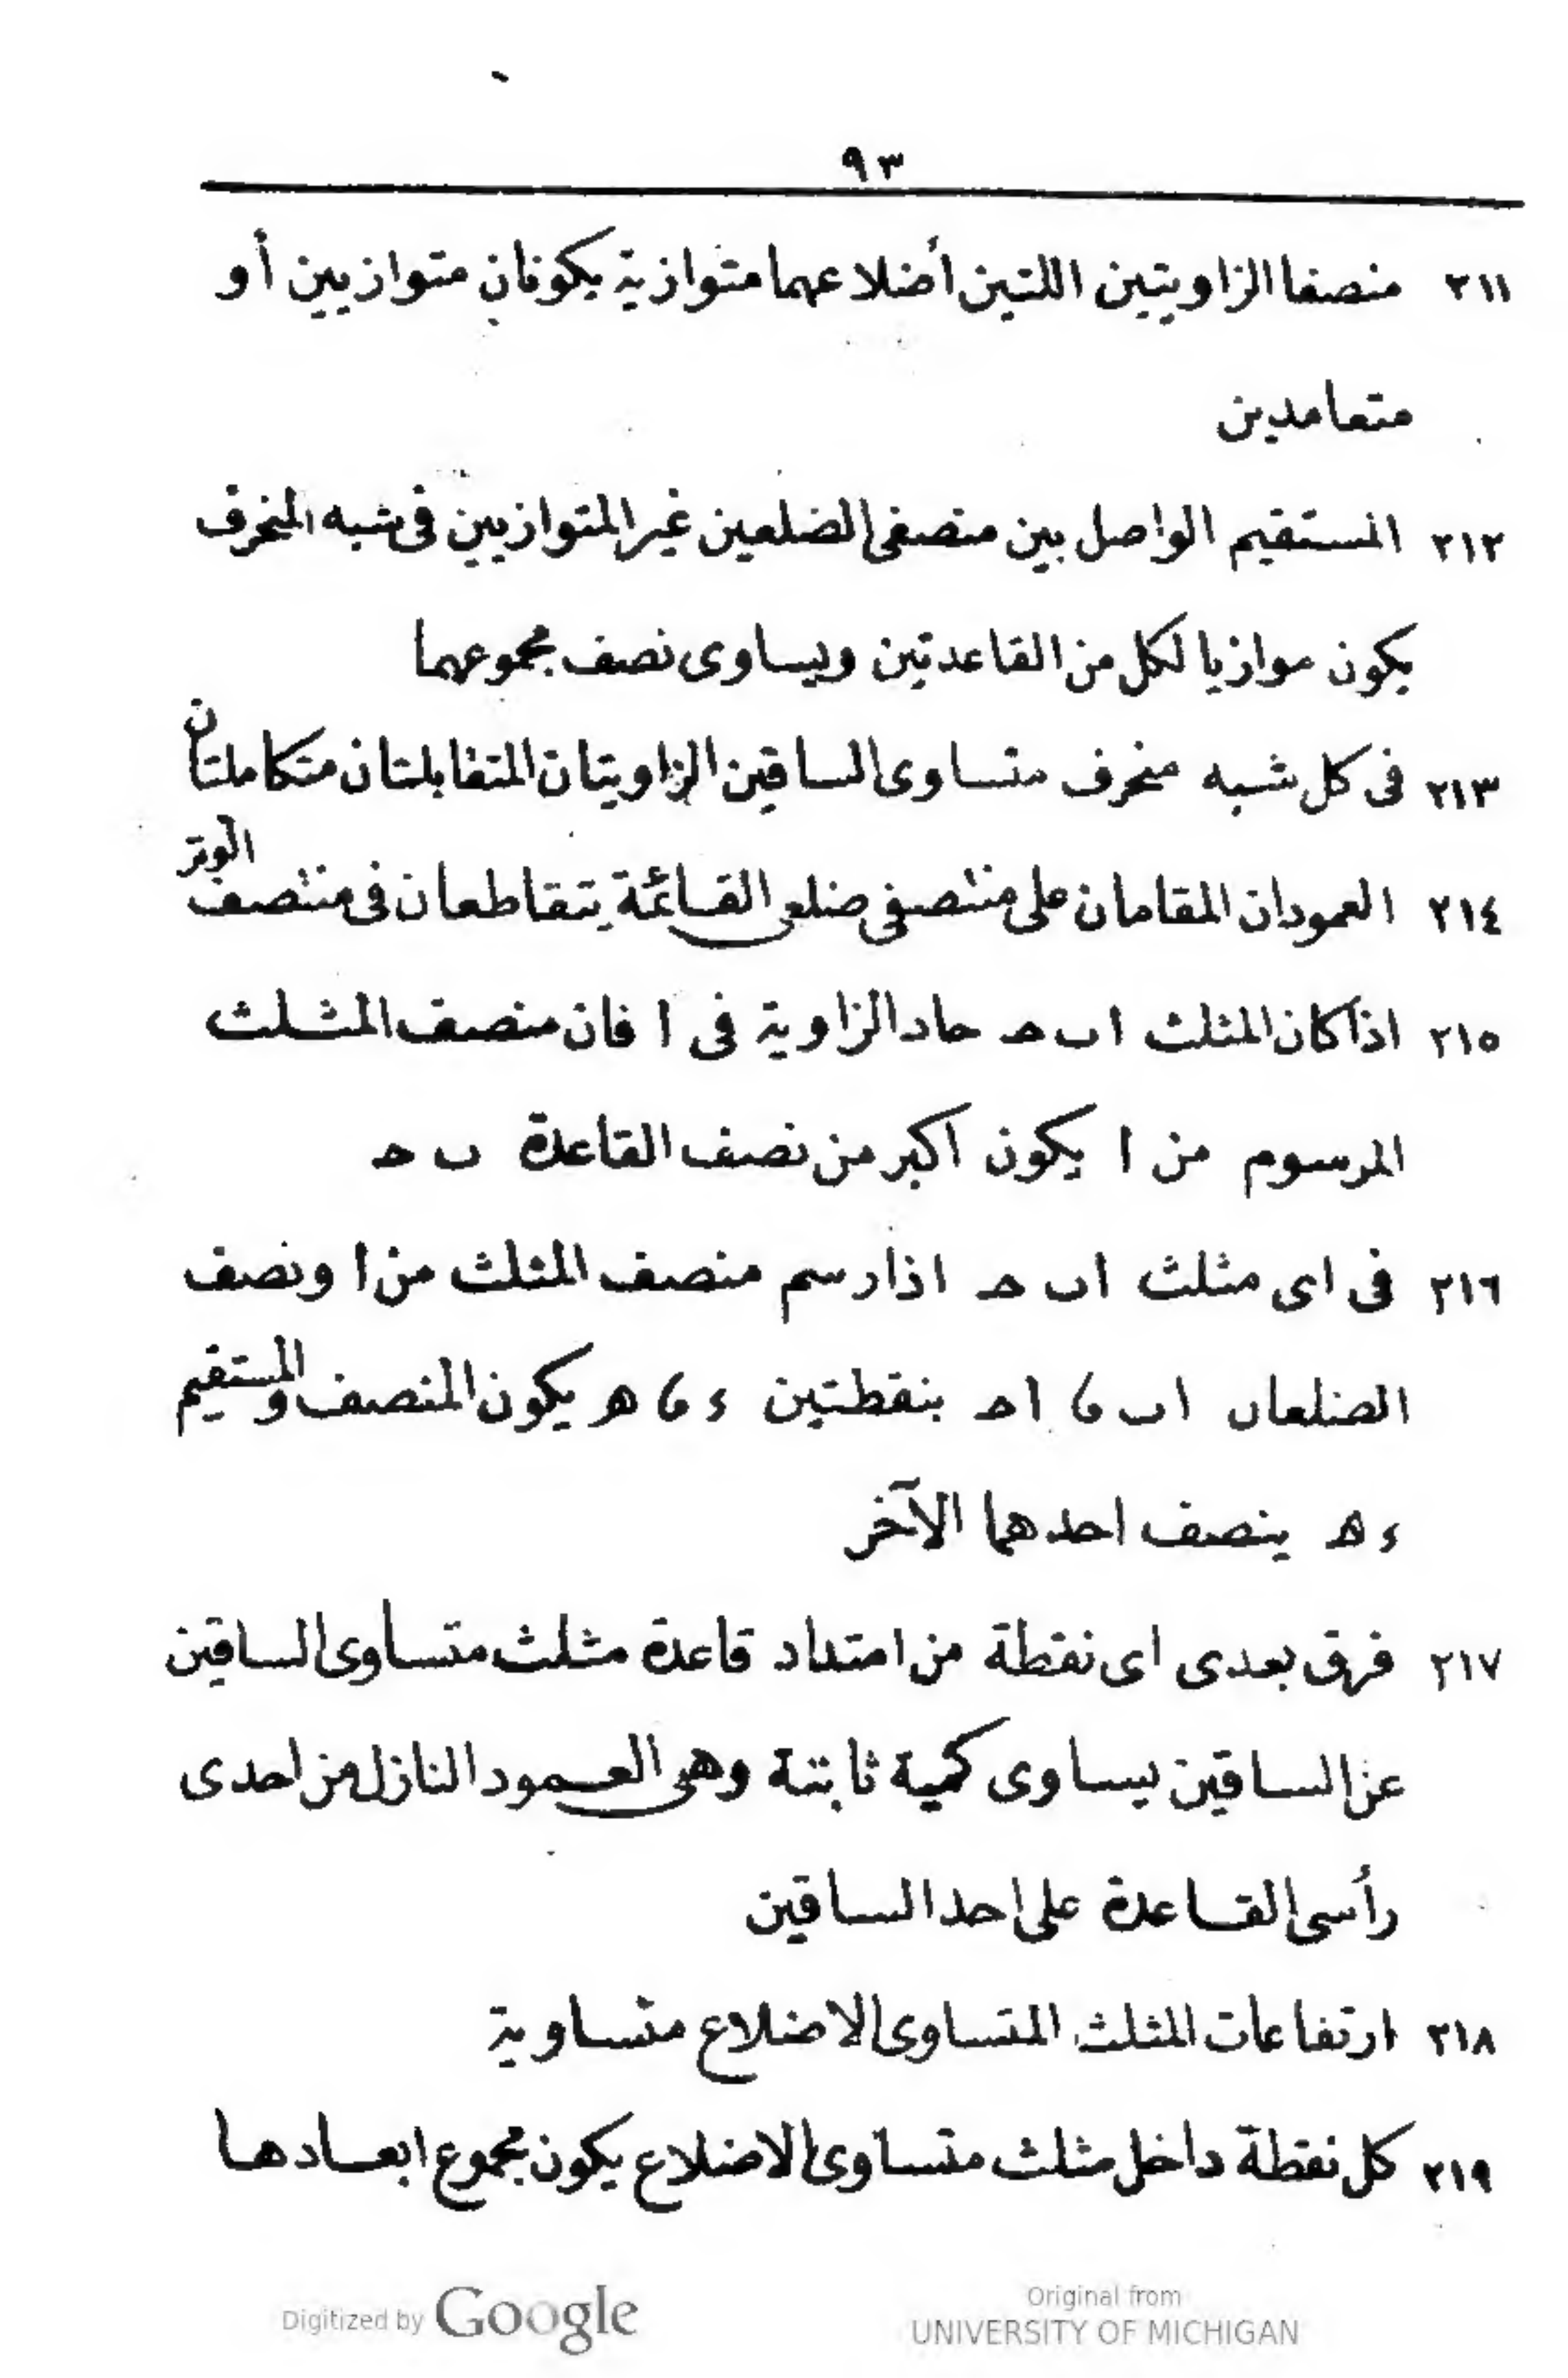 ٩٣
٢١١ منصفا الزاويتين اللتين أضلاعهما متوازية يكونان متوازيين أو
متعامدين
٢١٢ المستقيم الواصل بين منصفى الضلعين غير المتوازيين فى شبه المنحرف
يكون موازيا لكل من القاعدتين ويساوى نصف مجموعهما
٢١٣ فى كل شبه منحرف متساوى الساقين الزاويتان المتقابلتان متكاملتان
٢١٤ العمودان المقامان على منتصفى ضلعى القائمة يتقاطعان فى منتصف الوتر
٢١٥ اذا كان المثلث ا ب حـ حاد الزاوية فى ا فان منصف المثلث
المرسوم من ا يكون اكبر من نصف القاعدة ب حـ
٢١٦ فى اى مثلث ا ب حـ اذا رسم منصف المثلث من ا ونصف
الضلعان ا ب ٯ ا حـ بنقطتين ء ٯ هـ يكون المنصف والمستقيم
ء هـ ينصف احدهما الآخر
٢١٧ فرق بعدى اى نقطة من امتداد قاعدة مثلث متساوى الساقين
عن الساقين يساوى كمية ثابتة وهى العمود النازل من احدى
رأسى القاعدة على احد الساقين
٢١٨ ارتفاعات المثلث المتساوى الاضلاع متساوية
٢١٩ كل نقطة داخل مثلث متساوى الاضلاع يكون مجموع ابعادها
Digitized by Google
Original from
UNIVERSITY OF MICHIGAN